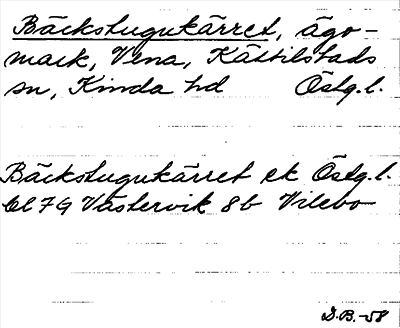 Bäckstugukärret, ägo-
mark, Vena, Kättilstads
sn, Kinda hd Östg.l.
Bäckstugukärret ek Östg.l.
bl 7G Västervik 8b Vilebo
D.B.-58